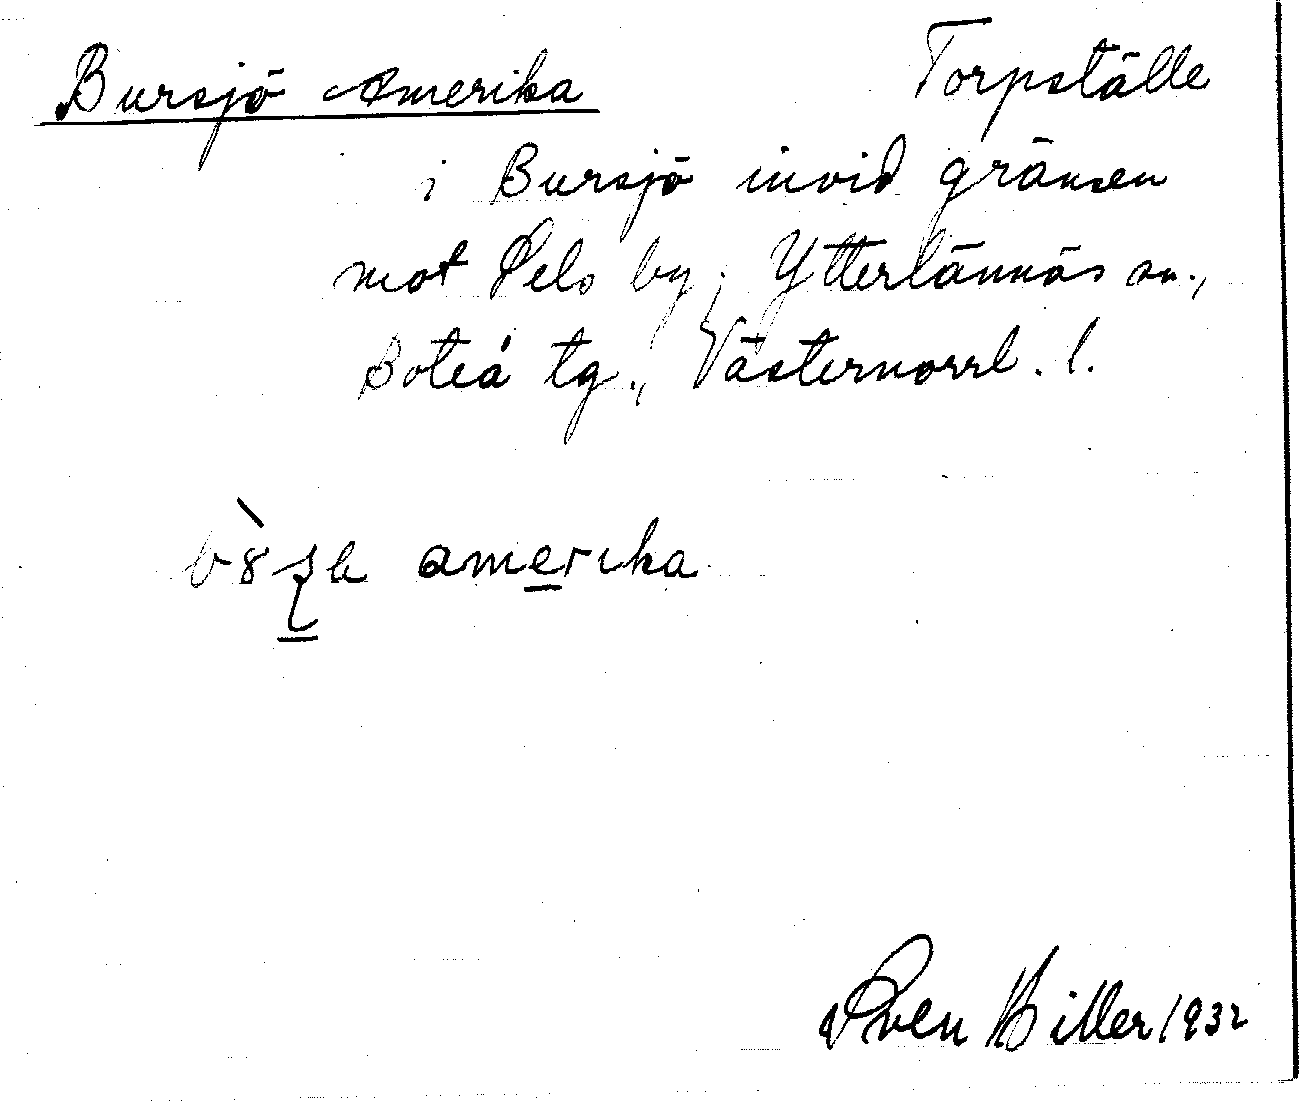 Bursjö Amerika Torpställe
i Bursjö invid gränsen
mot Pelo by; Ytterlännäs sn.,
Boteå tg., Västernorrl. l.
amerika
Sven Hiller 1932